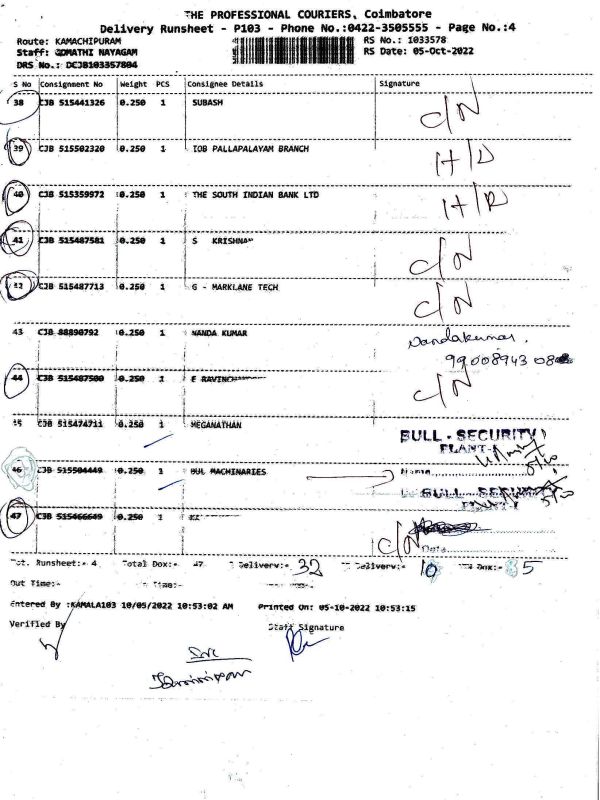 THE PROFESSIONAL COURIERS, Coimbatore
Delivery Runsheet - P103 - Phone No.:0422-3505555 - Page No.:4
Route: KAMACHIPURAM
RS No.: 1033578
Staff: GOMATHI NAYAGAM
RS Date: 05-Oct-2022
DRS No.: DCJB103357804
S No Consignment No Weight PCS Consignee Details Signature
38 CJB 515441326 0.250 1 SUBASH C/N
39 CJB 515502320 0.250 1 IOB PALLAPALAYAM BRANCH H/D
40 CJB 515359972 0.250 1 THE SOUTH INDIAN BANK LTD H/R
41 CJB 515487581 0.250 1 S KRISHNAN C/N
42 CJB 515487713 0.250 1 G - MARKLANE TECH C/N
43 CJB 88890792 0.250 1 NANDA KUMAR Nandakumar.
99008943 08
44 CJB 515487580 0.250 1 E RAVIN C/N
45 CJB 515474711 0.250 1 MEGANATHAN BULL - SECURITY
PLANT-I
46 CJB 515504449 0.250 1 BUL MACHINARIES Name
BULL - SECURITY
PLANT-I
47 CJB 515466649 0.250 1 C/N
Date
Tot. Runsheet:- 4 Total Dox:- 47 Delivery:- 32 Delivery:- 10 Dox:- 5
Out Time:- In Time:-
Entered By :KAMALA103 10/05/2022 10:53:02 AM Printed On: 05-10-2022 10:53:15
Verified By Staff Signature